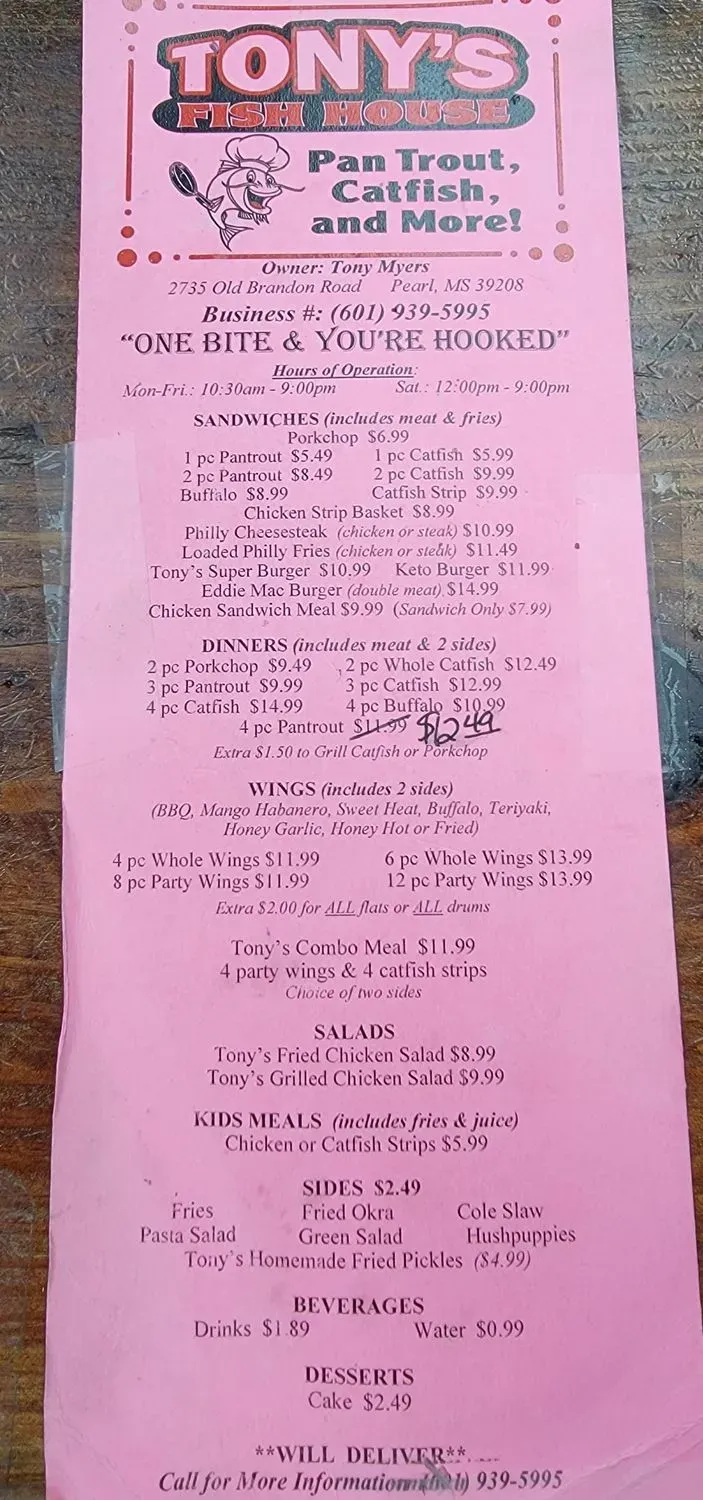 TONY'S
FISH HOUSE
Pan Trout,
Catfish,
and More!
Owner: Tony Myers
2735 Old Brandon Road Pearl, MS 39208
Business #: (601) 939-5995
“ONE BITE & YOU'RE HOOKED”
Hours of Operation:
Mon-Fri.: 10:30am - 9:00pm Sat.: 12:00pm - 9:00pm
SANDWICHES (includes meat & fries)
Porkchop $6.99
1 pc Pantrout $5.49 1 pc Catfish $5.99
2 pc Pantrout $8.49 2 pc Catfish $9.99
Buffalo $8.99 Catfish Strip $9.99
Chicken Strip Basket $8.99
Philly Cheesesteak (chicken or steak) $10.99
Loaded Philly Fries (chicken or steak) $11.49
Tony's Super Burger $10.99 Keto Burger $11.99
Eddie Mac Burger (double meat) $14.99
Chicken Sandwich Meal $9.99 (Sandwich Only $7.99)
DINNERS (includes meat & 2 sides)
2 pc Porkchop $9.49 2 pc Whole Catfish $12.49
3 pc Pantrout $9.99 3 pc Catfish $12.99
4 pc Catfish $14.99 4 pc Buffalo $10.99
4 pc Pantrout $11.99 $12.49
Extra $1.50 to Grill Catfish or Porkchop
WINGS (includes 2 sides)
(BBQ, Mango Habanero, Sweet Heat, Buffalo, Teriyaki,
Honey Garlic, Honey Hot or Fried)
4 pc Whole Wings $11.99 6 pc Whole Wings $13.99
8 pc Party Wings $11.99 12 pc Party Wings $13.99
Extra $2.00 for ALL flats or ALL drums
Tony's Combo Meal $11.99
4 party wings & 4 catfish strips
Choice of two sides
SALADS
Tony's Fried Chicken Salad $8.99
Tony's Grilled Chicken Salad $9.99
KIDS MEALS (includes fries & juice)
Chicken or Catfish Strips $5.99
SIDES $2.49
Fries Fried Okra Cole Slaw
Pasta Salad Green Salad Hushpuppies
Tony's Homemade Fried Pickles ($4.99)
BEVERAGES
Drinks $1.89 Water $0.99
DESSERTS
Cake $2.49
**WILL DELIVER**
Call for More Information 939-5995